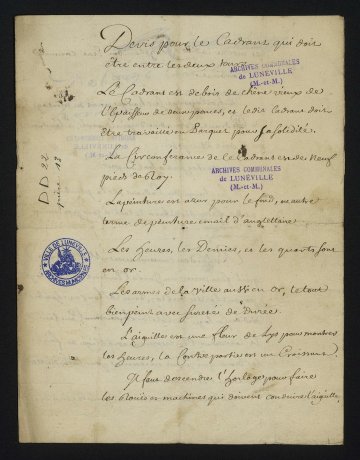 Devis pour le Cadrant qui doit
être entre les deux tours
ARCHIVES COMMUNALES
de LUNÉVILLE
(M.-et-M.)
Le Cadrant est de bois de chene vieux de
l'Epaisseur de deux pouces, et le dit Cadrant doit
être travaillé en Parquet pour sa solidité.
La Circonferance de le Cadrant est de Neuf
pieds de Roy.
ARCHIVES COMMUNALES
de LUNÉVILLE
(M.-et-M.)
DD 22
pièce 17
La peinture est azur pour le fond, en autre
terme de peinture email d'angleterre
Les heures, les Demies, et les quarts sont
en or
VILLE DE LUNÉVILLE
ARCHIVES MUNICIPALES
Les armes de la Ville aussi en or, le tout
bien peint avec sureté de Durée.
L'aiguille est une fleur de Lys pour montrer
les heures, la Contre partie est un Croissant
Il faut descendre l'horloge pour faire
les Roües et machines qui doivent conduire l'aiguille